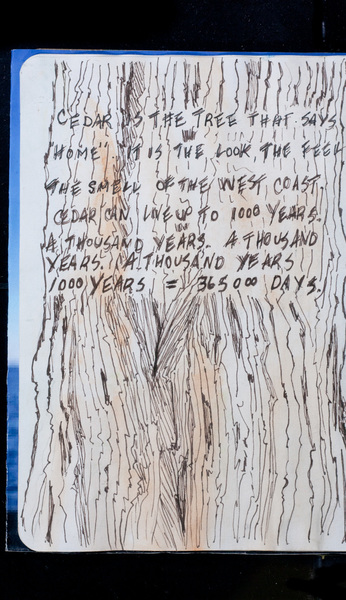 CEDAR IS THE TREE THAT SAYS
"HOME". IT IS THE LOOK THE FEEL
THE SMELL OF THE WEST COAST.
CEDAR CAN LIVE UP TO 1000 YEARS.
A THOUSAND YEARS. A THOUSAND
YEARS. A THOUSAND YEARS
1000 YEARS = 365000 DAYS.